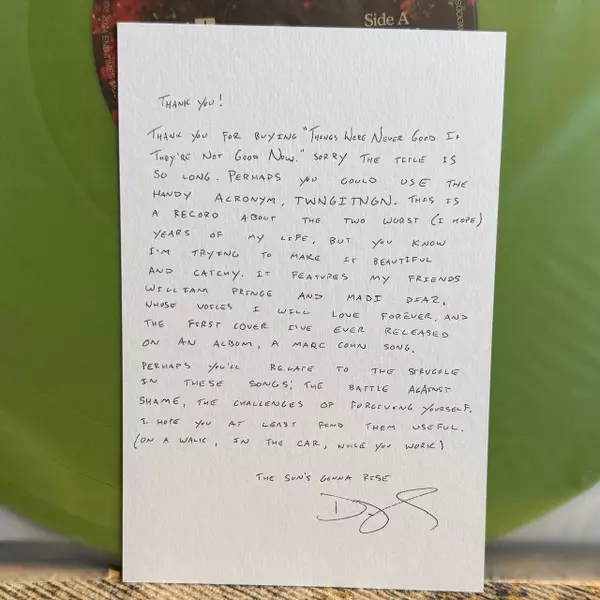 Side A
THANK YOU!
THANK YOU FOR BUYING "THINGS WERE NEVER GOOD IF
THEY'RE NOT GOOD NOW." SORRY THE TITLE IS
SO LONG. PERHAPS YOU COULD USE THE
HANDY ACRONYM, TWNGITNGN. THIS IS
A RECORD ABOUT THE TWO WORST (I HOPE)
YEARS OF MY LIFE, BUT YOU KNOW
I'M TRYING TO MAKE IT BEAUTIFUL
AND CATCHY. IT FEATURES MY FRIENDS
WILLIAM PRINCE AND MADI DIAZ,
WHOSE VOICES I WILL LOVE FOREVER, AND
THE FIRST COVER I'VE EVER RELEASED
ON AN ALBUM, A MARC COHN SONG.
PERHAPS YOU'LL RELATE TO THE STRUGGLE
IN THESE SONGS; THE BATTLE AGAINST
SHAME, THE CHALLENGES OF FORGIVING YOURSELF.
I HOPE YOU AT LEAST FIND THEM USEFUL.
(ON A WALK, IN THE CAR, WHILE YOU WORK)
THE SUN'S GONNA RISE